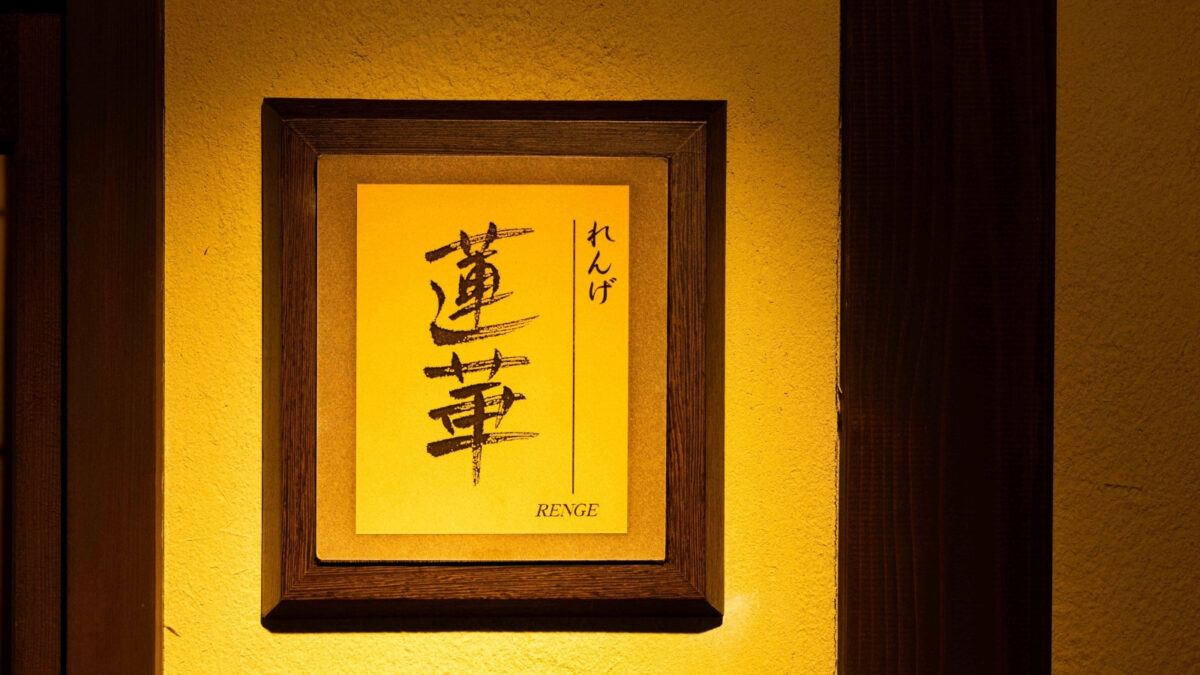 れんげ
蓮華
RENGE